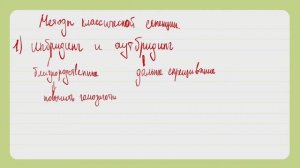 Методы классической селекции
1) инбридинг и аутбридинг
близкородственное дальнее скрещивание
повысить гомозиготн